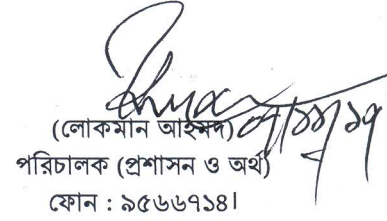 (লোকমান আহমদ)
পরিচালক (প্রশাসন ও অর্থ)
ফোন : ৯৫৬৬৭১৪।